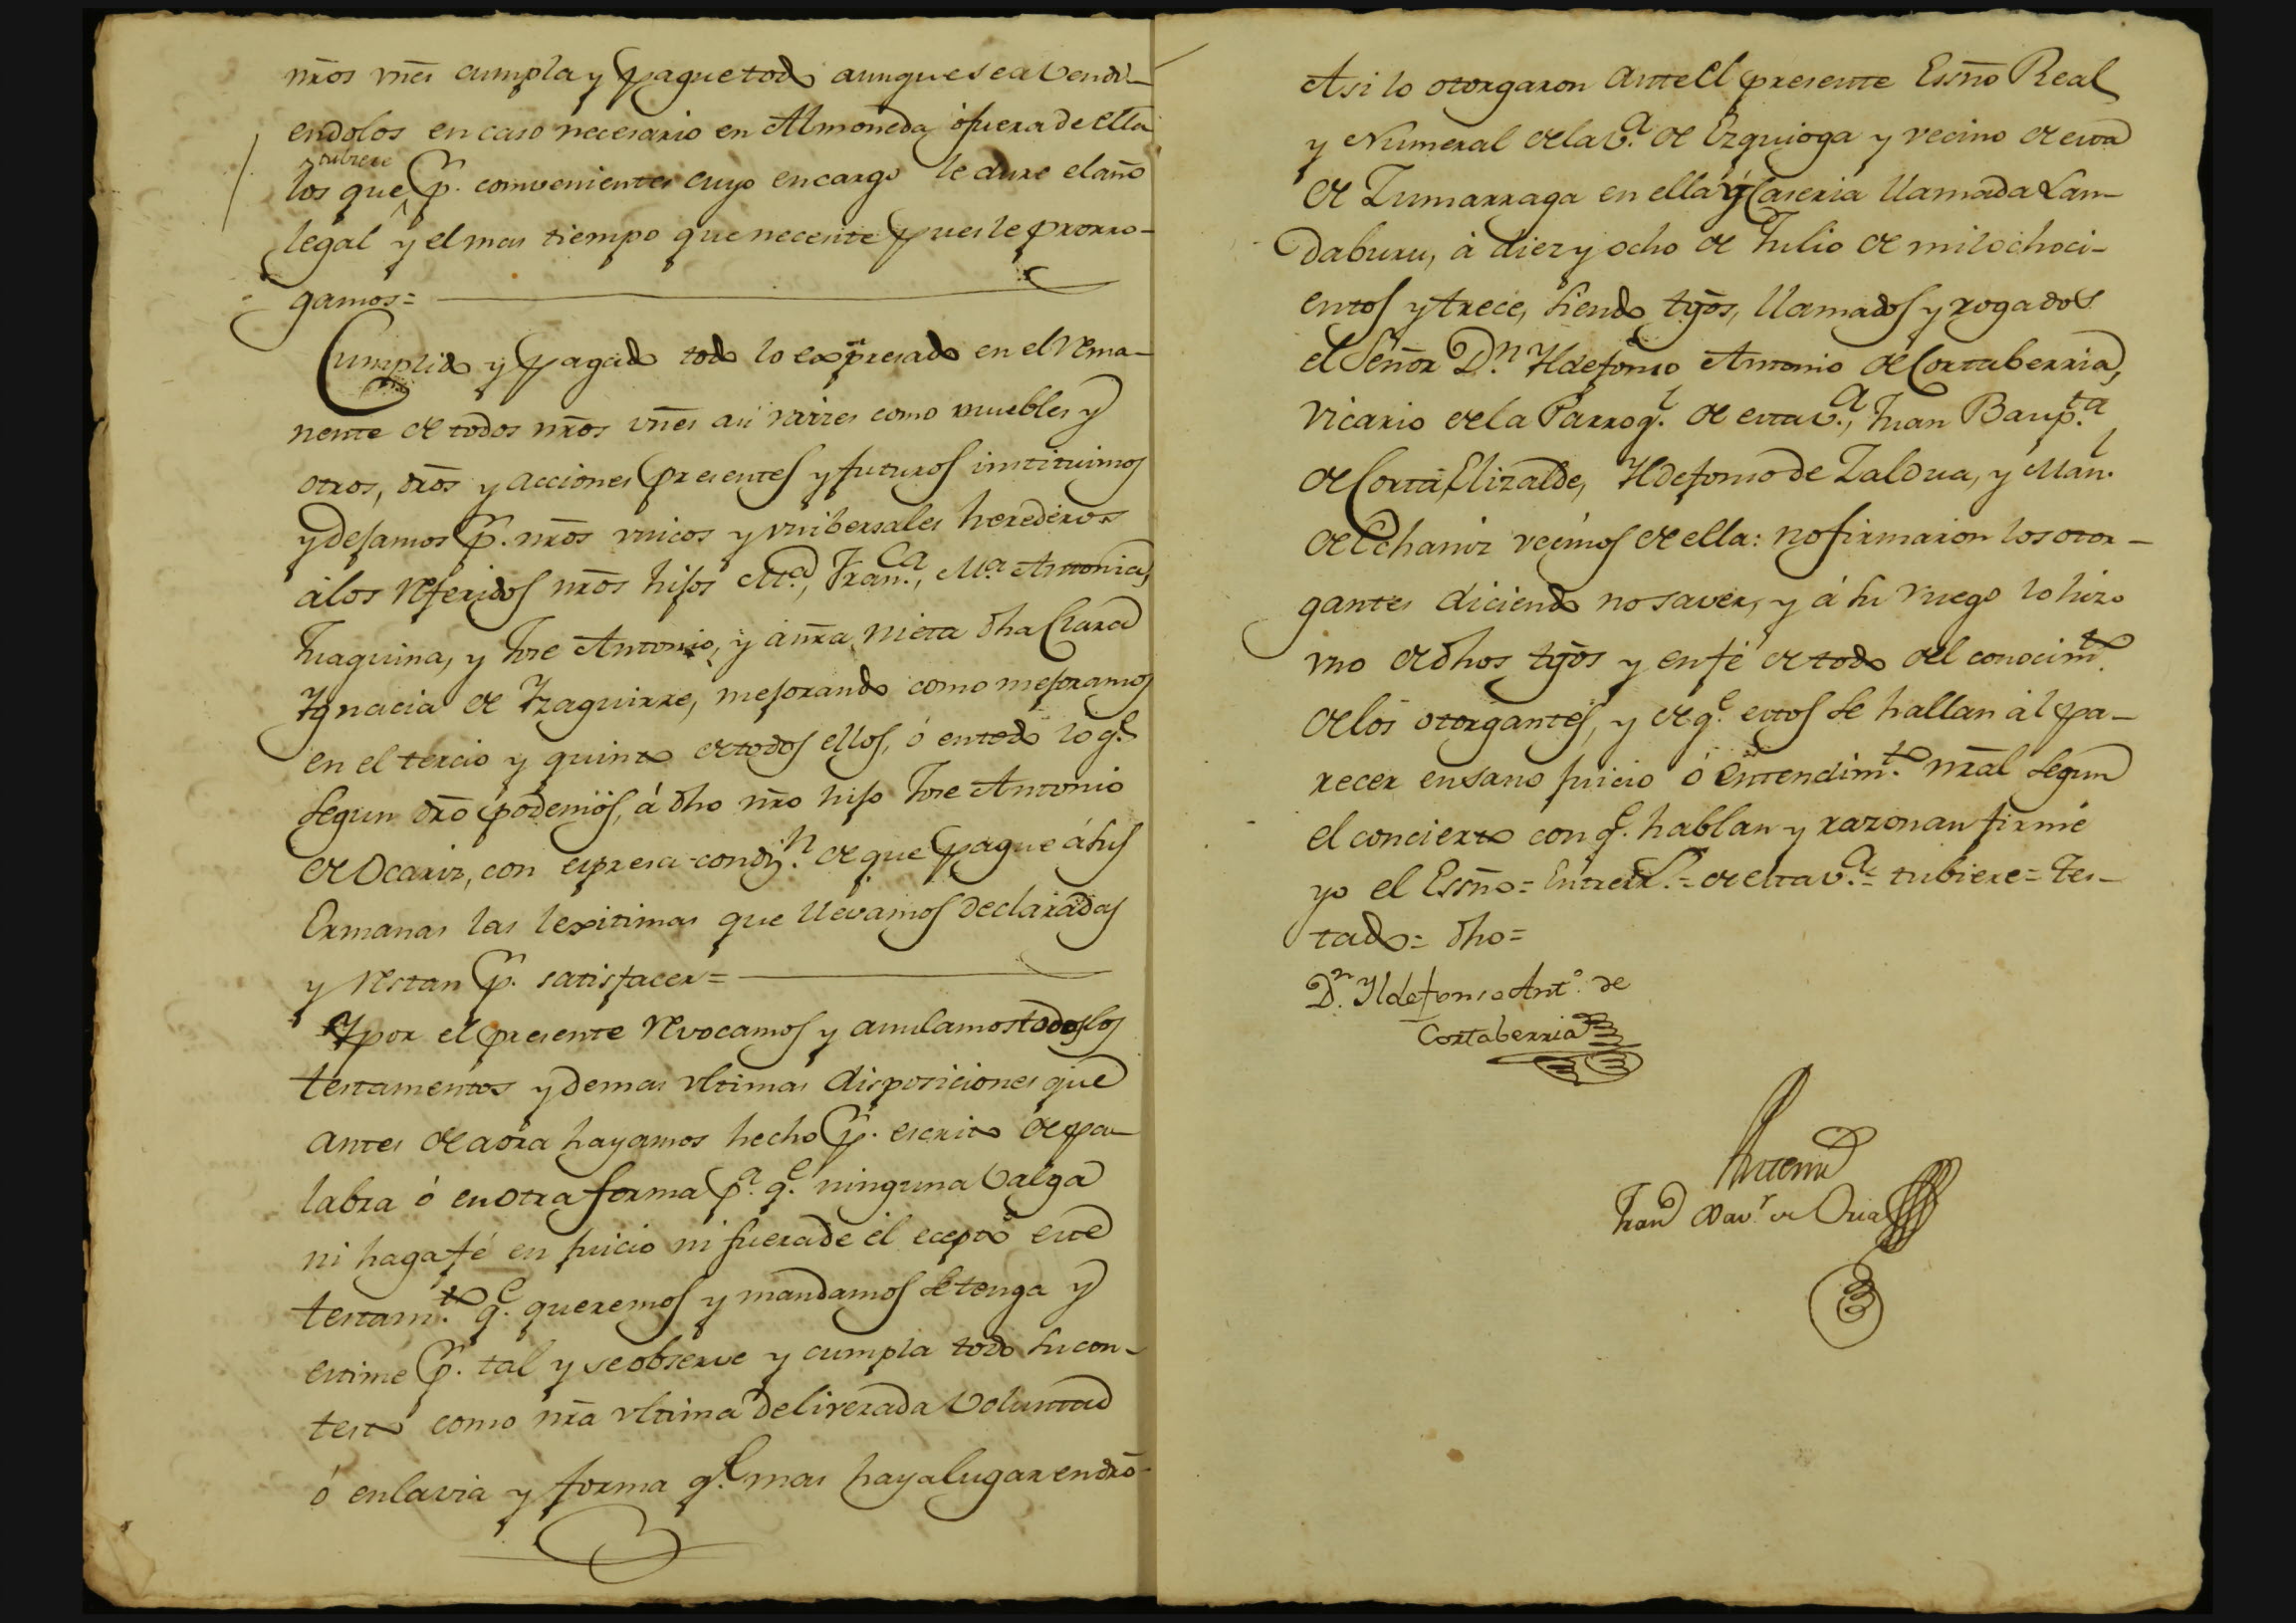 nr̃os vñes cumpla y pague todo aunque sea vendi-
endolos en caso necesario en Almoneda ó fuera de ella
tubiere
los que p.r convenientes cuyo encargo le dure el año
legal y el mas tiempo que necesite pues le prorro-
gamos=
Cumplido y pagado todo lo expresado en el rema-
nente de todos nr̃os vñes asi raizes como muebles y
otros, dr̃os y acciones presentes y futuros instituimos
y dejamos p.r nr̃os vnicos y vnibersales herederos
á los referidos nr̃os hijos M.a, Fran.ca, M.a Antonia,
Juaquina, y Jose Antonio, y á nr̃a nieta dha Clara
Ygnacia de Yzaguirre, mejorando como mejoramos
en el tercio y quinto de todos ellos, ó en todo lo q.e
segun dr̃o podemos, á dho nr̃o hijo Jose Antonio
de Ocariz, con espresa condiz.n de que pague á sus
Ermanas las lexitimas que llevamos declaradas
y restan p.r satisfacer=
Y por el presente revocamos y anulamos todos los
testamentos y demas vltimas disposiciones que
antes de aora hayamos hecho p.r escrito de pa-
labra ó en otra forma p.a q.e ninguna valga
ni haga fé en juicio ni fuera de él ecepto este
testam.to q.e queremos y mandamos se tenga y
estime p.r tal y se observe y cumpla todo su con-
testo como nr̃a vltima deliverada voluntad
ó en la via y forma q.e mas haya lugar en dr̃o.
Asi lo otorgaron ante el presente Essño Real
y Numeral de la v.a de Ezquioga y vecino de esta
de Zumarraga en ella y Caseria llamada Lan-
daburu, á diez y ocho de Julio de mil ochoci-
entos y trece, siendo tg̃os, llamados y rogados
el Señor D.n Yldefonso Antonio de Cortaberria,
Vicario de la Parroq.l de esta v.a, Juan Baup.ta
de Corta Elizalde, Yldefonso de Zaldua, y Man.l
de Echaniz vecinos de ella: no firmaron los otor-
gantes diciendo no saver, y á su ruego lo hizo
vno de dhos tg̃os y en fé de todo del conocim.to
de los otorgantes, y de q.e estos se hallan al pa-
recer en sano juicio ó entendim.to nr̃al segun
el concierto con q.e hablan y razonan firmé
yo el Essño= Entrerr.s= de esta v.a= tubiere= Tes-
tado= dho=
D.n Yldefonso Ant.o de
Cortaberria
Ante mi
Fran.co Xav.r de Oria